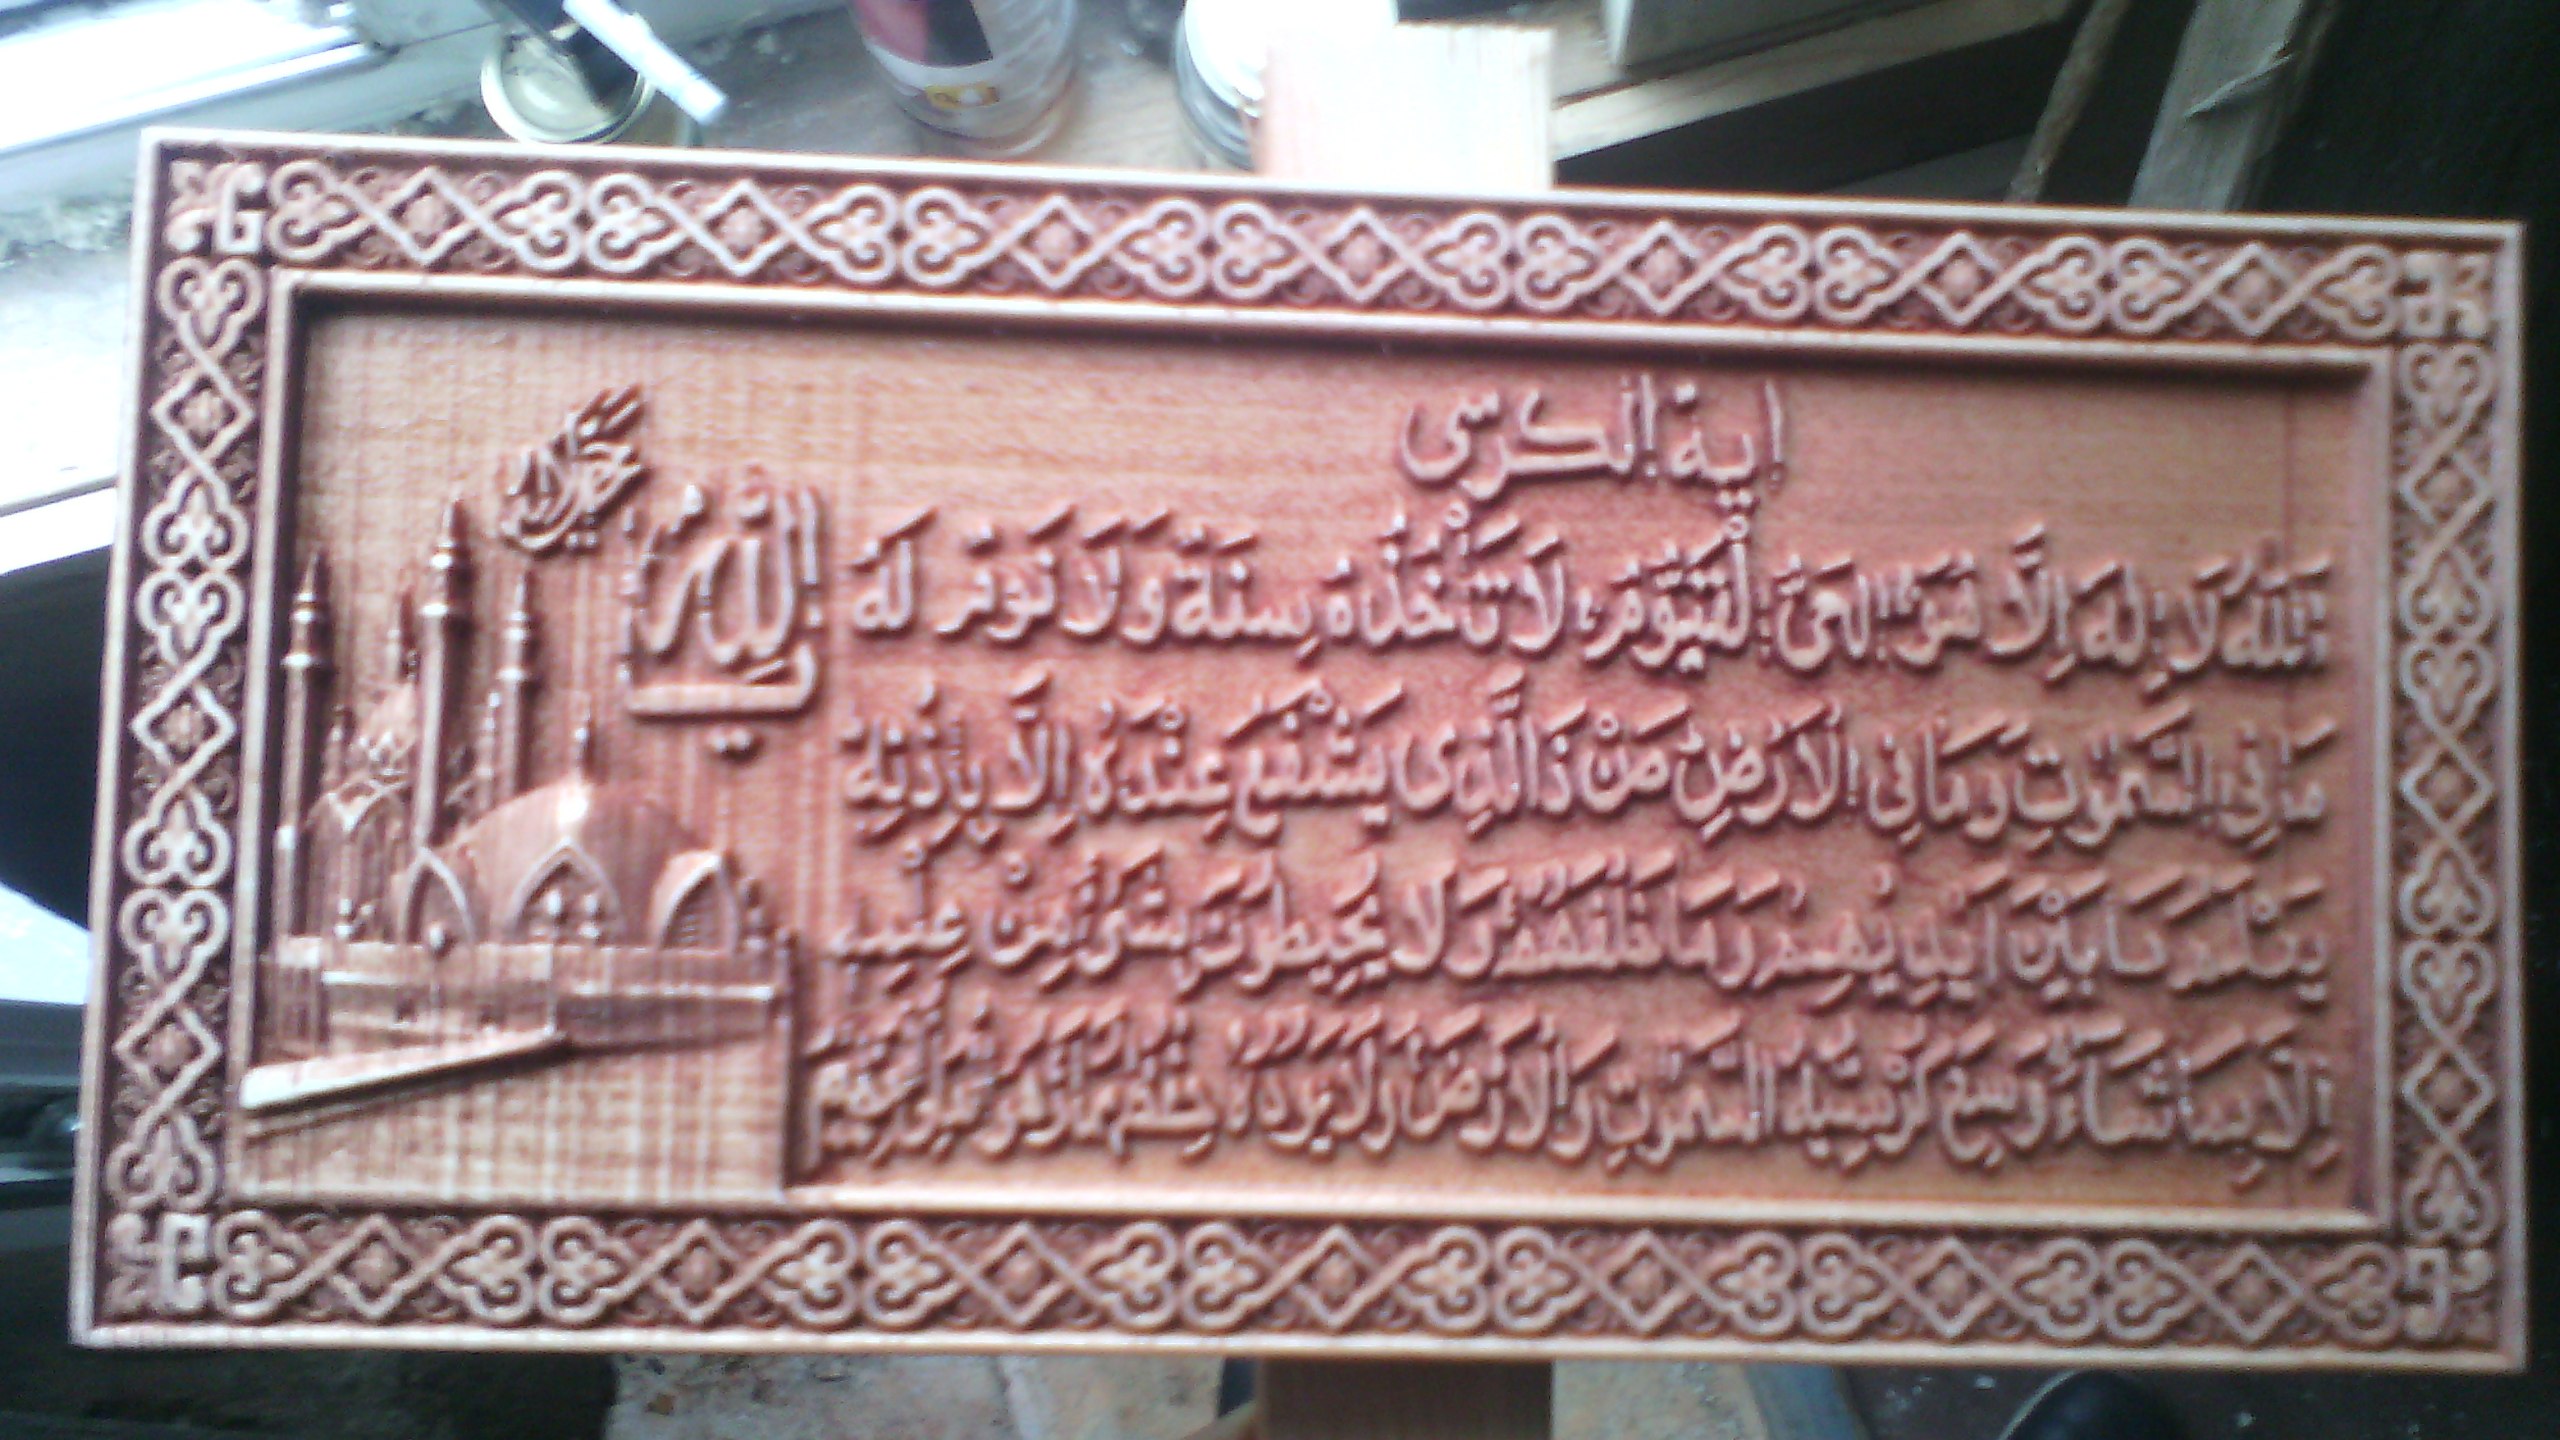 اية الكرسى
اَللّٰهُ لَا اِلٰهَ اِلَّا هُوَ اَلْحَىُّ الْقَيُّومُ لَا تَأْخُذُهُ سِنَةٌ وَلَا نَوْمٌ لَهُ
مَا فِى السَّمٰوَاتِ وَمَا فِى الْاَرْضِ مَنْ ذَا الَّذِى يَشْفَعُ عِنْدَهُ اِلَّا بِاِذْنِهِ
يَعْلَمُ مَا بَيْنَ اَيْدِيهِمْ وَمَا خَلْفَهُمْ وَلَا يُحِيطُونَ بِشَىْءٍ مِنْ عِلْمِهِ
اِلَّا بِمَا شَاءَ وَسِعَ كُرْسِيُّهُ السَّمٰوَاتِ وَالْاَرْضَ وَلَا يَؤُدُهُ حِفْظُهُمَا وَهُوَ الْعَلِىُّ الْعَظِيمُ